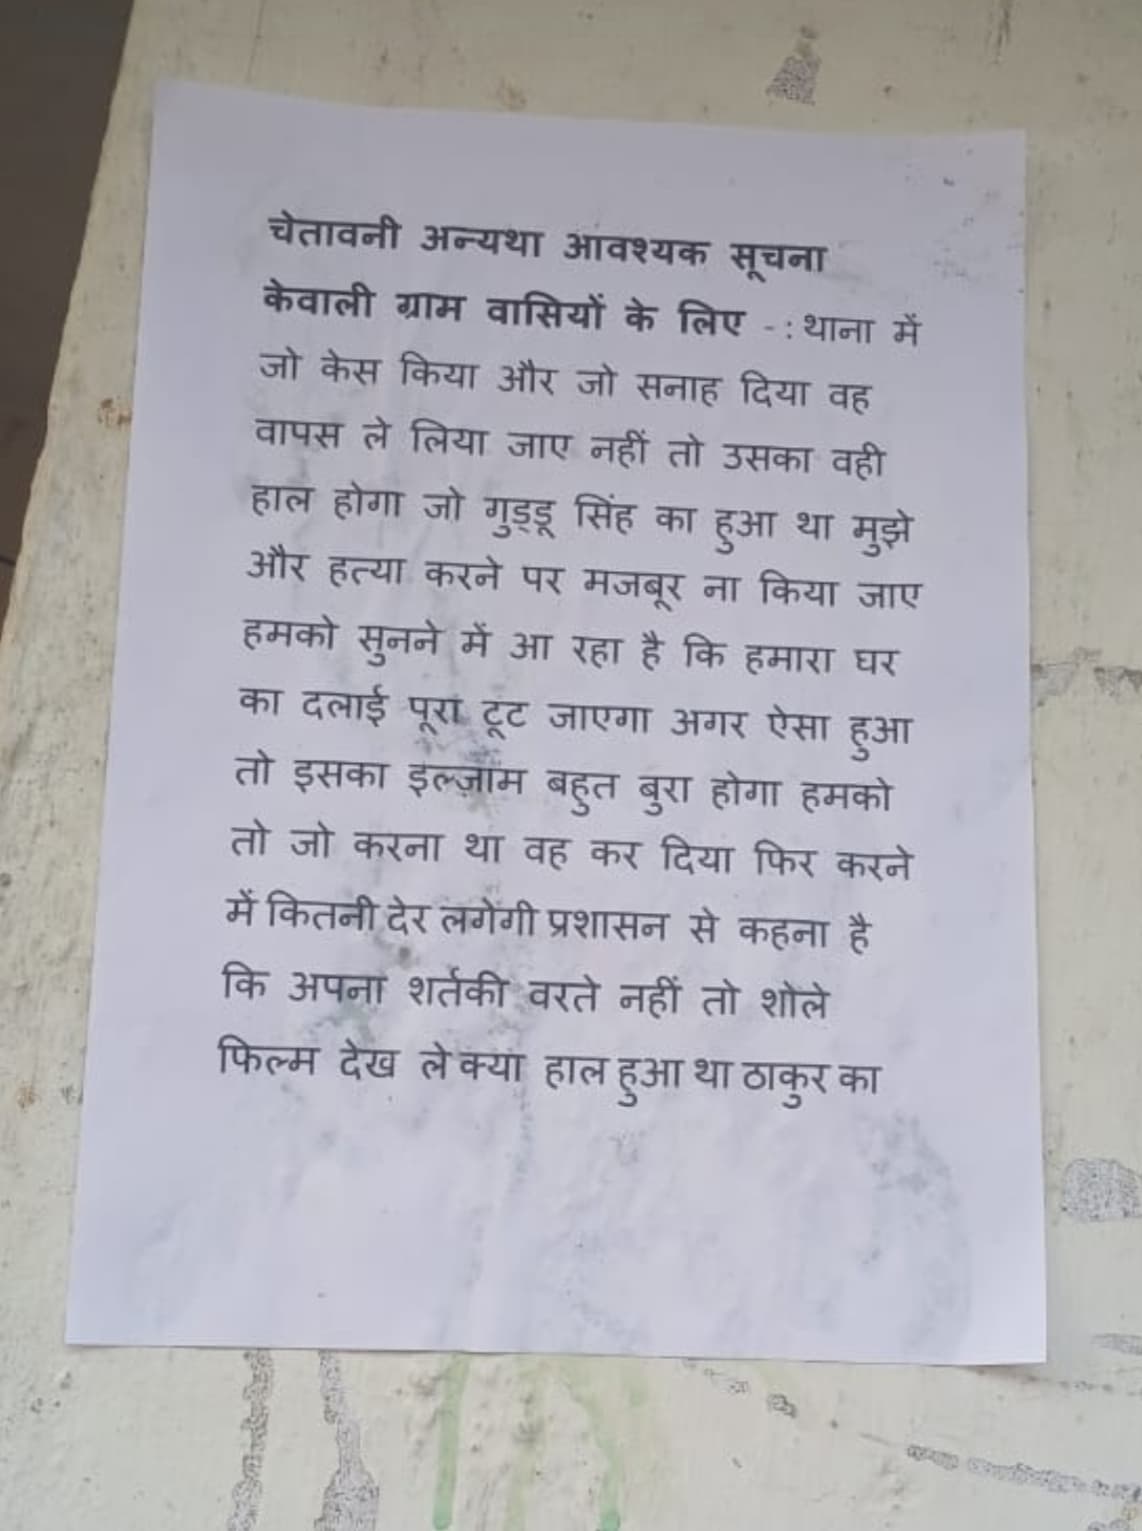 चेतावनी अन्यथा आवश्यक सूचना
केवाली ग्राम वासियों के लिए -: थाना में
जो केस किया और जो सनाह दिया वह
वापस ले लिया जाए नहीं तो उसका वही
हाल होगा जो गुड्डू सिंह का हुआ था मुझे
और हत्या करने पर मजबूर ना किया जाए
हमको सुनने में आ रहा है कि हमारा घर
का दलाई पूरा टूट जाएगा अगर ऐसा हुआ
तो इसका इल्ज़ाम बहुत बुरा होगा हमको
तो जो करना था वह कर दिया फिर करने
में कितनी देर लगेगी प्रशासन से कहना है
कि अपना शर्तकी वरते नहीं तो शोले
फिल्म देख ले क्या हाल हुआ था ठाकुर का